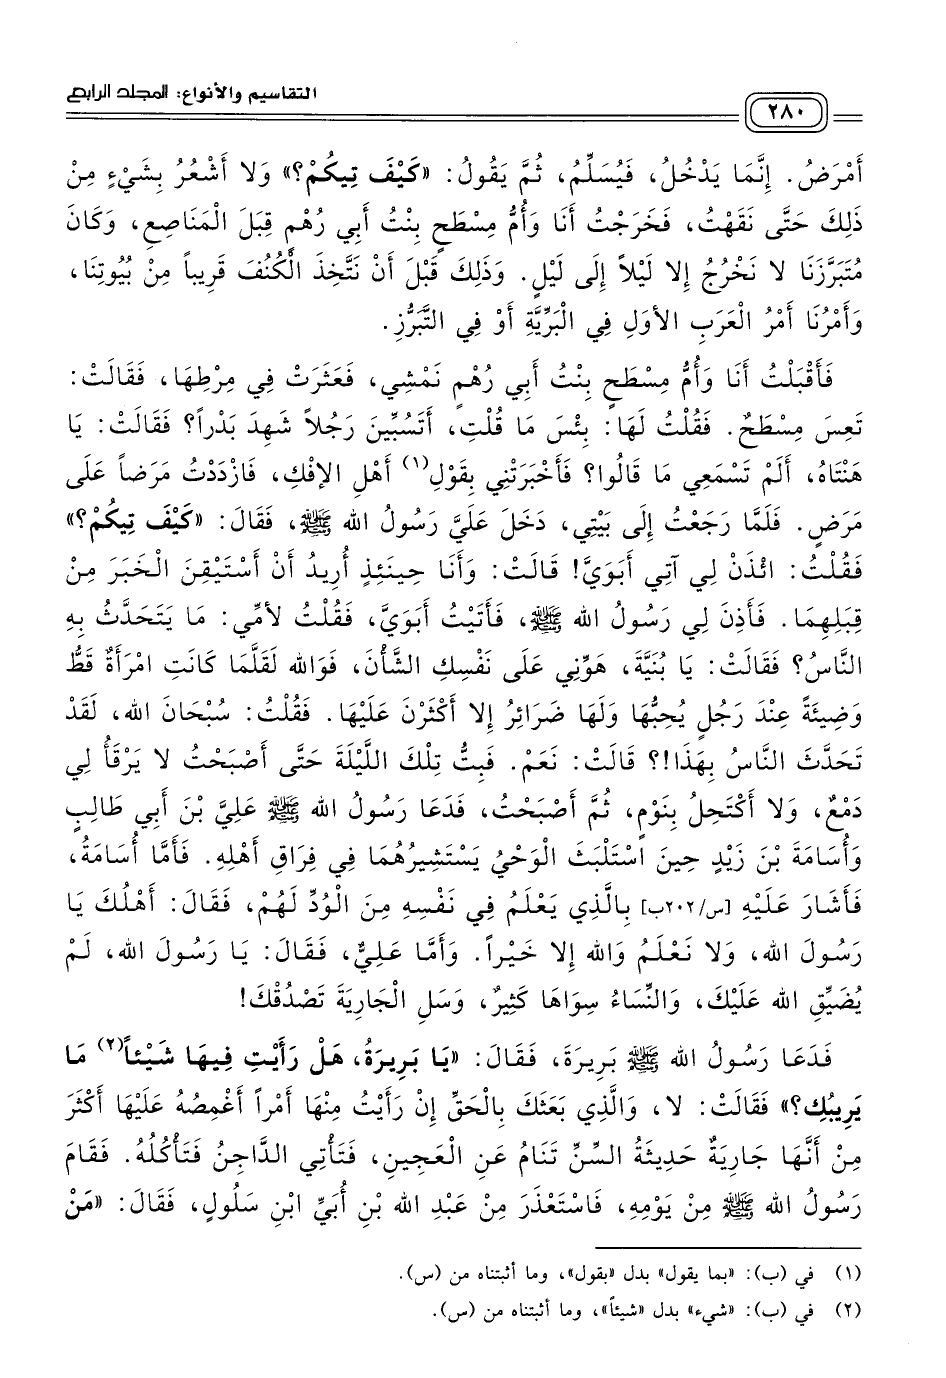 التقاسيم والأنواع: المجلد الرابع
٢٨٠
أَمْرَضُ. إِنَّمَا يَدْخُلُ، فَيُسَلِّمُ، ثُمَّ يَقُولُ: «كَيْفَ تِيكُمْ؟» وَلا أَشْعُرُ بِشَيْءٍ مِنْ
ذَلِكَ حَتَّى نَقَهْتُ، فَخَرَجْتُ أَنَا وَأُمُّ مِسْطَحٍ بِنْتُ أَبِي رُهْمٍ قِبَلَ الْمَنَاصِعِ، وَكَانَ
مُتَبَرَّزَنَا لا نَخْرُجُ إِلا لَيْلاً إِلَى لَيْلٍ. وَذَلِكَ قَبْلَ أَنْ نَتَّخِذَ الْكُنُفَ قَرِيباً مِنْ بُيُوتِنَا،
وَأَمْرُنَا أَمْرُ الْعَرَبِ الأَوَلِ فِي الْبَرِّيَّةِ أَوْ فِي التَّبَرُّزِ.
فَأَقْبَلْتُ أَنَا وَأُمُّ مِسْطَحٍ بِنْتُ أَبِي رُهْمٍ نَمْشِي، فَعَثَرَتْ فِي مِرْطِهَا، فَقَالَتْ:
تَعِسَ مِسْطَحٌ. فَقُلْتُ لَهَا: بِئْسَ مَا قُلْتِ، أَتَسُبِّينَ رَجُلاً شَهِدَ بَدْراً؟ فَقَالَتْ: يَا
هَنْتَاهُ، أَلَمْ تَسْمَعِي مَا قَالُوا؟ فَأَخْبَرَتْنِي بِقَوْلِ(١) أَهْلِ الإِفْكِ، فَازْدَدْتُ مَرَضاً عَلَى
مَرَضٍ. فَلَمَّا رَجَعْتُ إِلَى بَيْتِي، دَخَلَ عَلَيَّ رَسُولُ الله ﷺ، فَقَالَ: «كَيْفَ تِيكُمْ؟»
فَقُلْتُ: ائْذَنْ لِي آتِي أَبَوَيَّ! قَالَتْ: وَأَنَا حِينَئِذٍ أُرِيدُ أَنْ أَسْتَيْقِنَ الْخَبَرَ مِنْ
قِبَلِهِمَا. فَأَذِنَ لِي رَسُولُ الله ﷺ، فَأَتَيْتُ أَبَوَيَّ، فَقُلْتُ لأُمِّي: مَا يَتَحَدَّثُ بِهِ
النَّاسُ؟ فَقَالَتْ: يَا بُنَيَّةَ، هَوِّنِي عَلَى نَفْسِكِ الشَّأْنَ، فَوَالله لَقَلَّمَا كَانَتِ امْرَأَةٌ قَطُّ
وَضِيئَةً عِنْدَ رَجُلٍ يُحِبُّهَا وَلَهَا ضَرَائِرُ إِلا أَكْثَرْنَ عَلَيْهَا. فَقُلْتُ: سُبْحَانَ الله، لَقَدْ
تَحَدَّثَ النَّاسُ بِهَذَا!؟ قَالَتْ: نَعَمْ. فَبِتُّ تِلْكَ اللَّيْلَةَ حَتَّى أَصْبَحْتُ لا يَرْقَأُ لِي
دَمْعٌ، وَلا أَكْتَحِلُ بِنَوْمٍ، ثُمَّ أَصْبَحْتُ، فَدَعَا رَسُولُ الله ﷺ عَلِيَّ بْنَ أَبِي طَالِبٍ
وَأُسَامَةَ بْنَ زَيْدٍ حِينَ اسْتَلْبَثَ الْوَحْيُ يَسْتَشِيرُهُمَا فِي فِرَاقِ أَهْلِهِ. فَأَمَّا أُسَامَةُ،
فَأَشَارَ عَلَيْهِ [س/٢٠٢ب] بِالَّذِي يَعْلَمُ فِي نَفْسِهِ مِنَ الْوُدِّ لَهُمْ، فَقَالَ: أَهْلُكَ يَا
رَسُولَ الله، وَلا نَعْلَمُ وَالله إِلا خَيْراً. وَأَمَّا عَلِيٌّ، فَقَالَ: يَا رَسُولَ الله، لَمْ
يُضَيِّقِ الله عَلَيْكَ، وَالنِّسَاءُ سِوَاهَا كَثِيرٌ، وَسَلِ الْجَارِيَةَ تَصْدُقْكَ!
فَدَعَا رَسُولُ الله ﷺ بَرِيرَةَ، فَقَالَ: «يَا بَرِيرَةُ، هَلْ رَأَيْتِ فِيهَا شَيْئاً(٢) مَا
يَرِيبُكِ؟» فَقَالَتْ: لا، وَالَّذِي بَعَثَكَ بِالْحَقِّ إِنْ رَأَيْتُ مِنْهَا أَمْراً أَغْمِصُهُ عَلَيْهَا أَكْثَرَ
مِنْ أَنَّهَا جَارِيَةٌ حَدِيثَةُ السِّنِّ تَنَامُ عَنِ الْعَجِينِ، فَتَأْتِي الدَّاجِنُ فَتَأْكُلُهُ. فَقَامَ
رَسُولُ الله ﷺ مِنْ يَوْمِهِ، فَاسْتَعْذَرَ مِنْ عَبْدِ الله بْنِ أُبَيِّ ابْنِ سَلُولٍ، فَقَالَ: «مَنْ
(١) في (ب): «بما يقول» بدل «بقول»، وما أثبتناه من (س).
(٢) في (ب): «شيء» بدل «شيئاً»، وما أثبتناه من (س).